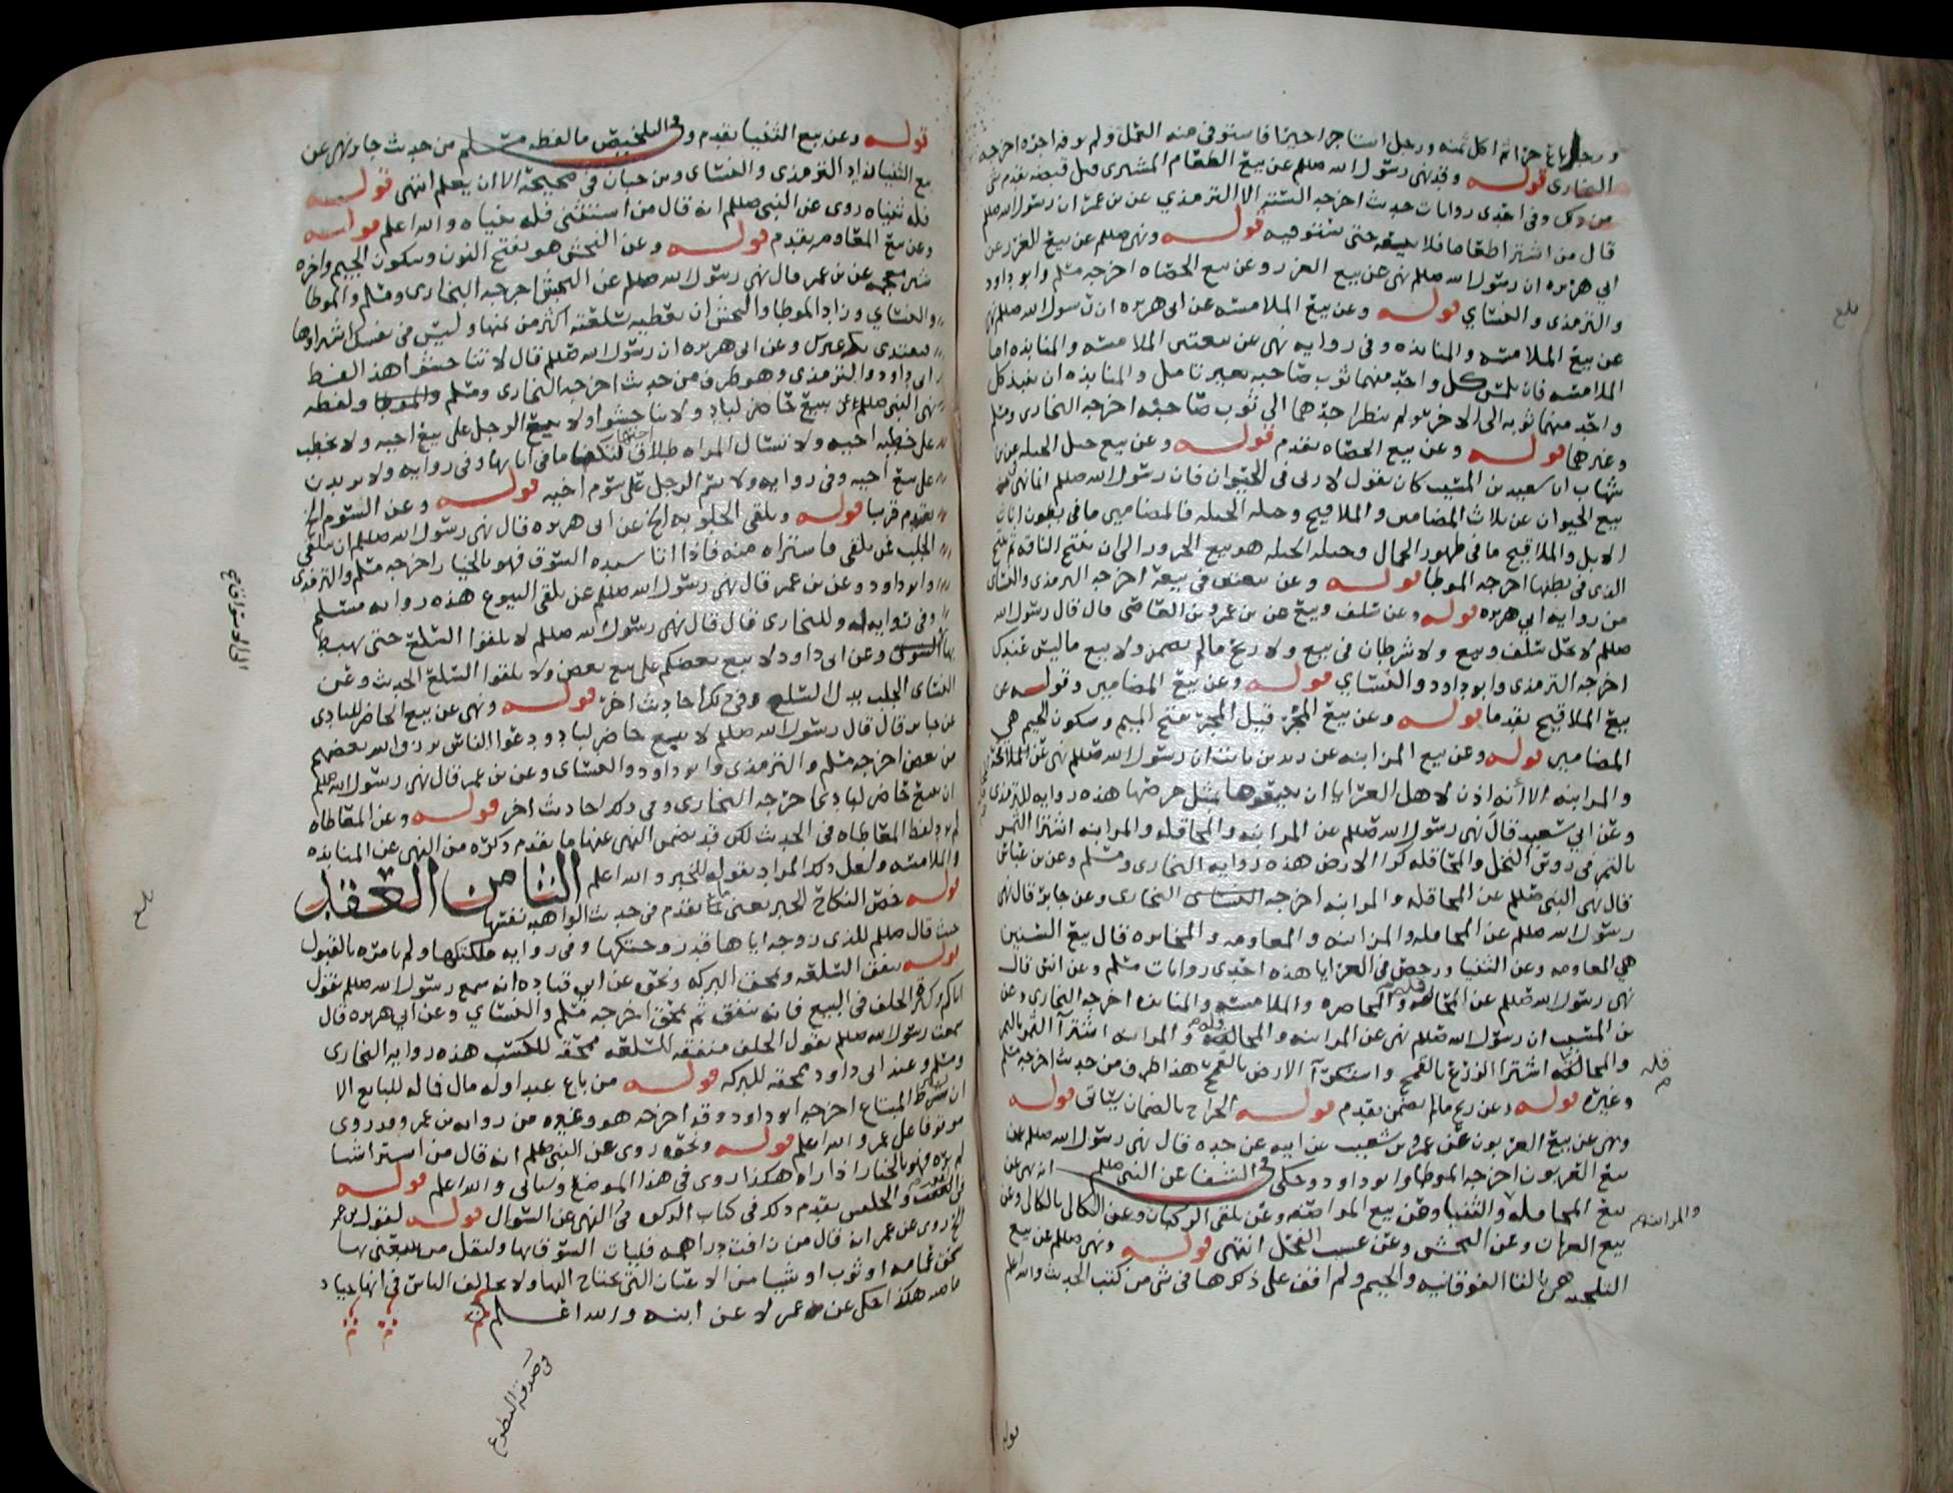 ورجل باع حرا ثم اكل ثمنه ورجل استاجر اجيرا فاستوفى منه العمل ولم يوفه اجره اخرجه
البخارى قوله وقد نهى رسول الله صللم عن بيع الطعام المشترى قبل قبضه تقدم في
وفي احدى روايات حديث اخرجه الستة الا الترمذي عن بن عمر ان رسول الله صللم
قال من اشترا طعاما فلا يبيعه حتى يستوفيه قوله ونهى صللم عن بيع الغرر عن
ابي هريره ان رسول الله صللم نهى عن بيع الغرر وعن بيع الحصاه اخرجه مسلم وابو داود
والترمذى والنساي قوله وعن بيع الملامسه عن ابى هريره ان رسول الله صللم نهى
عن بيع الملامسه والمنابذه وفي روايه نهى عن بيعتين الملامسه والمنابذه اما
الملامسه فان يلمس كل واحد منهما ثوب صاحبه بغير تامل والمنابذه ان ينبذ كل
واحد منهما ثوبه الى الاخر ولم ينظر احدهما الى ثوب صاحبه اخرجه البخارى ومسلم
وغيرهما قوله وعن بيع الحصاه تقدم قوله وعن بيع حبل الحبله عن بن
شهاب ان سعيد بن المسيب كان يقول لا ربى فى الحيوان فان رسول الله صللم انما نهى
بيع الحيوان عن ثلاث المضامين والملاقيح وحبله الحبله فالمضامين ما فى بطون اناث
الابل والملاقيح ما فى ظهور الجمال وحبله الحبله هو بيع الجزور الى ان تنتج الناقه ثم تنتج
الذى فى بطنها اخرجه الموطا قوله وعن بيعتين فى بيعة اخرجه الترمذى والنساى
من روايه ابي هريره قوله وعن سلف وبيع عن بن عمرو بن العاصى قال قال رسول الله
صللم لا يحل سلف وبيع ولا شرطان فى بيع ولا ربح مالم يضمن ولا بيع ما ليس عندك
اخرجه الترمذى وابو داود والنساي قوله وعن بيع المضامين وقوله عن
بيع الملاقيح تقدما قوله وعن بيع المجر قيل المجر بفتح الميم وسكون الجيم هي
المضامين قوله وعن بيع المزابنه عن زيد بن ثابت ان رسول الله صللم نهى عن المحاقلة
والمزابنه الا أنه اذن لاهل العرايا ان يبيعوها بمثل خرصها هذه روايه للترمذى
وعن ابي سعيد قال نهى رسول الله صللم عن المزابنه والمحاقله والمزابنه اشترا الثمر
بالتمر في رؤس النخل والمحاقله كرا الارض هذه روايه البخارى ومسلم وعن بن عباس
قال نهى النبي صللم عن المحاقله والمزابنه اخرجه البخارى وعن جابر قال نهى
رسول الله صللم عن المحاقله والمزابنه والمعاومه والمخابره قال بيع السنين
هي المعاومه وعن الثنيا ورخص فى العرايا هذه احدى روايات مسلم وعن انس قال
نهى رسول الله صللم عن المحاقله والمخاضره والملامسه والمنابذه اخرجه البخارى وعن
بن المسيب ان رسول الله صللم نهى عن المزابنه والمحاقله والمزابنه اشترآ الثمر بالتمر
والمحاقله اشترا الزرع بالقمح واستكرآ الارض بالقمح هذا طرف من حديث اخرجه مسلم
وغيره قوله وعن ربح مالم يضمن تقدم قوله الخراج بالضمان يتاتى قوله
ونهى عن بيع العربون عن عمرو بن شعيب عن ابيه عن جده قال نهى رسول الله صللم عن
بيع العربون اخرجه الموطا وابو داود وحكى في الشفا عن النبي صللم انه نهى عن
بيع المحاقله والثنيا وعن بيع المواصفه وعن تلقى الركبان وعن الكالى بالكالى وعن
بيع العربان وعن النجش وعن عسب الفحل انتهى قوله ونهى صللم عن بيع
التلجيه هى بالتا الفوقانيه والجيم ولم اقف على ذكرها فى شى من كتب الحديث والله اعلم
والمزابنه
قوله
قوله وعن بيع الثنيا تقدم وفي التلخيص ما لفظه مسلم من حديث جابر نهى عن
بيع الثنيا زاد الترمذى والنساى وبن حبان فى صحيحه الا ان يعلم انتهى قوله
فله ثنياه روى عن النبى صللم انه قال من استثنى فله ثنياه والله اعلم قوله
وعن بيع المعاومه تقدم قوله وعن النجش هو بفتح النون وسكون الجيم واخره
شين معجمه عن بن عمر قال نهى رسول الله صللم عن النجش اخرجه البخارى ومسلم والموطا
والنساي وزاد الموطا والنجش ان تعطيه بسلعته اكثر من ثمنها وليس فى نفسك اشتراوها
ليقتدى بك غيرك وعن ابى هريره ان رسول الله صللم قال لا تناجشوا هذا لفظ
ابى داود والترمذى وهو طرف من حديث اخرجه البخارى ومسلم والموطا ولفظه
نهى النبى صللم عن يبيع حاضر لباد ولا تناجشوا ولا يبيع الرجل على بيع اخيه ولا يخطب
على خطبه اخيه ولا تسال المراه طلاق اختها لتكفا ما فى انائها وفى روايه ولا يزيدن
على بيع اخيه وفى روايه ولا يسم الرجل على سوم اخيه قوله وعن السوم الخ
تقدم قريبا قوله وتلقى الجلوبه الخ عن ابى هريره قال نهى رسول الله صللم ان يتلقى
الجلب فمن تلقى فاشتراه منه فاذا اتا سيده السوق فهو بالخيار اخرجه مسلم والترمذى
وابو داود وعن بن عمر قال نهى رسول الله صللم عن تلقى البيوع هذه روايه مسلم
وفى روايه له وللبخارى قال قال نهى رسول الله صللم لا تلقوا السلع حتى يهبط
بها السوق وعن ابى داود لا يبيع بعضكم على بيع بعض ولا تلقوا السلع الحديث وعن
النساى الجلب بدل السلع وفي ذلك احاديث اخر قوله ونهى عن بيع الحاضر للبادى
عن جابر قال قال رسول الله صللم لا يبيع حاضر لباد ودعوا الناس يرزق الله بعضهم
من بعض اخرجه مسلم والترمذى وابو داود والنساى وعن بن عمر قال نهى رسول الله صللم
ان يبيع حاضر لباد اخرجه البخارى وفى ذلك احاديث اخر قوله وعن المقاطاه
لم يرد لفظ المقاطاه فى الحديث لكن قد تضمن النهى عنها ما تقدم ذكره من النهى عن المنابذه
والملامسه ولعل ذلك المراد بقوله للخبر والله اعلم الثامن العقد
قوله خص النكاح الخبر يعنى ما تقدم فى حديث الواهبه نفسها
حيث قال صللم للذى زوجه اياها قد زوجتكها وفى روايه ملكتكها ولم يامره بالقبول
قوله تنفق السلعه وتمحق البركه ونحوه عن ابى قتاده انه سمع رسول الله صللم يقول
اياكم وكثرة الحلف فى البيع فانه ينفق ثم يمحق اخرجه مسلم والنساي وعن ابي هريره قال
سمعت رسول الله صللم يقول الحلف منفقه للسلعه ممحقه للكسب هذه روايه البخارى
ومسلم وعند ابى داود ممحقه للبركه قوله من باع عبدا وله مال فماله للبايع الا
ان يشترط المبتاع اخرجه ابو داود وقد اخرجه هو وغيره من روايه بن عمر وقد روى
موقوفا على عمر والله اعلم قوله ونحوه روى عن النبى صللم انه قال من اشترا شيا
لم يره فهو بالخيار اذا راه هكذا روى فى هذا الموضع وسياتى والله اعلم قوله
تقدم ذلك فى كتاب الزكوه فى النهى عن السوال قوله لقول بن عمر
الخ روى عن عمر انه قال من زافت دراهمه فليات السوق بها وليقل من يبيعنى بها
سحق عمامه او ثوب او شيا من الاعيان التى يحتاج اليها ولا يحالف الناس فى انها جياد
هكذا حكى عن عمر لا عن ابنه والله اعلم
فى صدقة التطوع